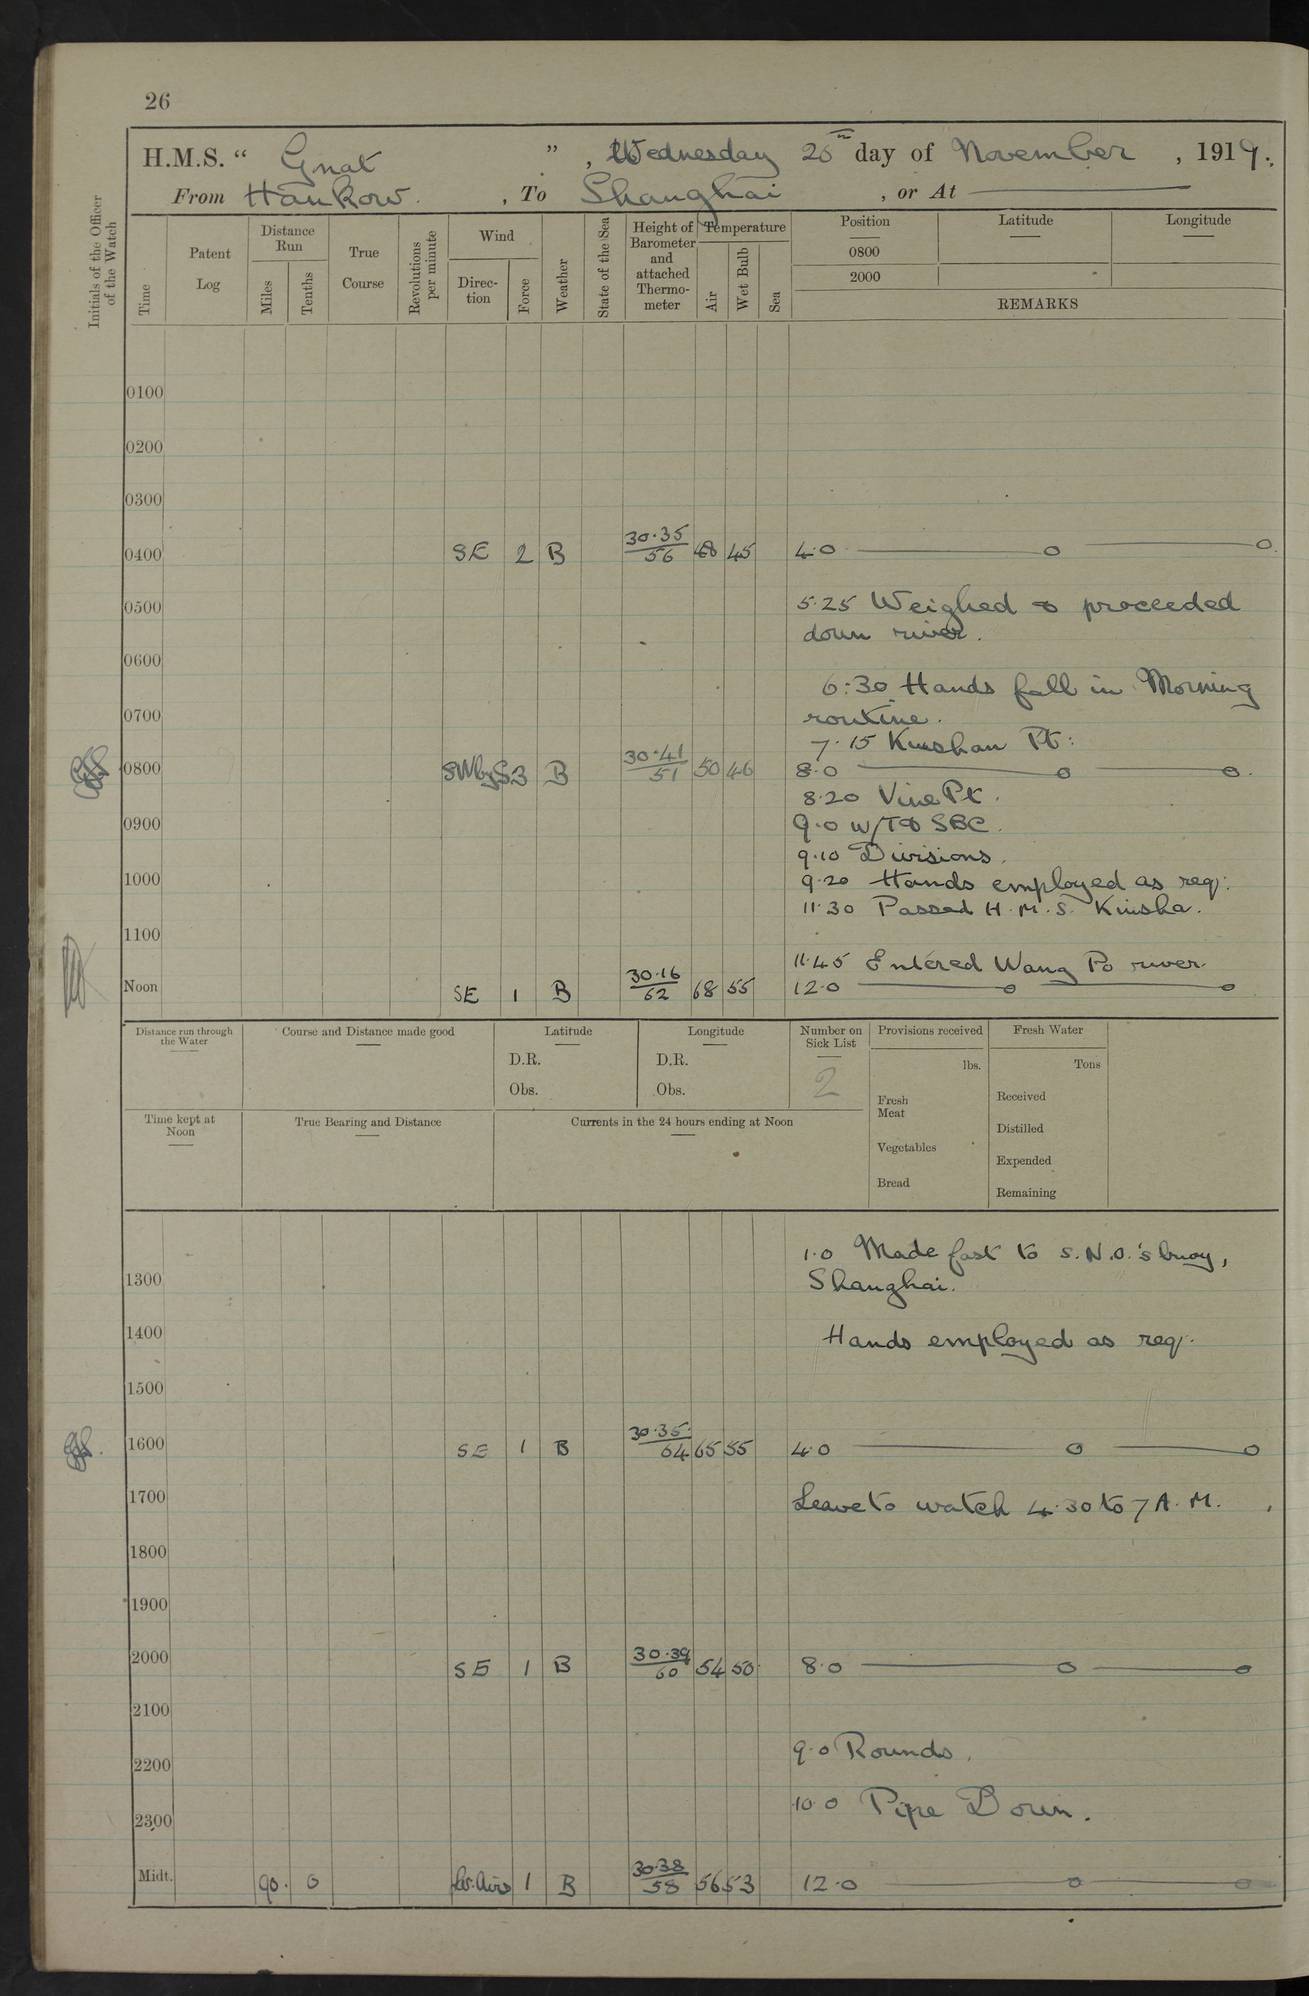 26
H.M.S. “ Gnat ” , Wednesday 26th day of November , 1919.
From Hankow. , To Shanghai , or At
Initials of the Officer of the Watch
Time
Patent Log
Distance Run
Miles
Tenths
True Course
Revolutions per minute
Wind
Direc-tion
Force
Weather
State of the Sea
Height of Barometer and attached Thermo-meter
Temperature
Air
Wet Bulb
Sea
Position
0800
2000
Latitude
Longitude
REMARKS
0100
0200
0300
0400 SE 2 B 30·35/56 48 45 4·0
0500 5·25 Weighed & proceeded
down river.
0600
6:30 Hands fall in Morning
0700 routine.
7·15 Kinshan Pt:
0800 SWbyS 3 B 30·41/51 50 46 8·0
8·20 Vine Pt.
0900 9·0 W/T & SBC.
9·10 Divisions.
1000 9·20 Hands employed as req:
11·30 Passed H.M.S. Kinsha.
1100
11·45 Entered Wang Po river.
Noon SE 1 B 30·16/62 68 55 12·0
Distance run through the Water
Course and Distance made good
Latitude
D.R.
Obs.
Longitude
D.R.
Obs.
Number on Sick List
2
Provisions received
lbs.
Fresh Meat
Vegetables
Bread
Fresh Water
Tons
Received
Distilled
Expended
Remaining
Time kept at Noon
True Bearing and Distance
Currents in the 24 hours ending at Noon
1·0 Made fast to S.N.O.'s buoy,
1300 Shanghai.
1400 Hands employed as req.
1500
1600 SE 1 B 30·35/64 65 55 4·0
1700 Leave to watch 4·30 to 7 A.M.
1800
1900
2000 SE 1 B 30·39/60 54 50 8·0
2100
2200 9·0 Rounds.
2300 10·0 Pipe Down.
Midt. 90· 0 Lt. Airs 1 B 30·38/58 56 53 12·0